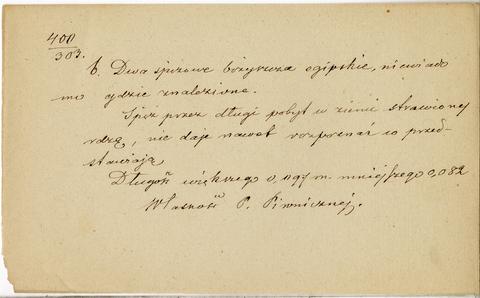 400
303.
b. Dwa spiżowe bożyszcza egipskie, niewiado
mo gdzie znalezione.
Spiż przez długi pobyt w ziemi strawiony
rdzą, nie daje nawet rozpoznać co przed-
stawiają
Długość większego 0,097 m. mniejszego 0,082
Własność P. Piwnicznej.